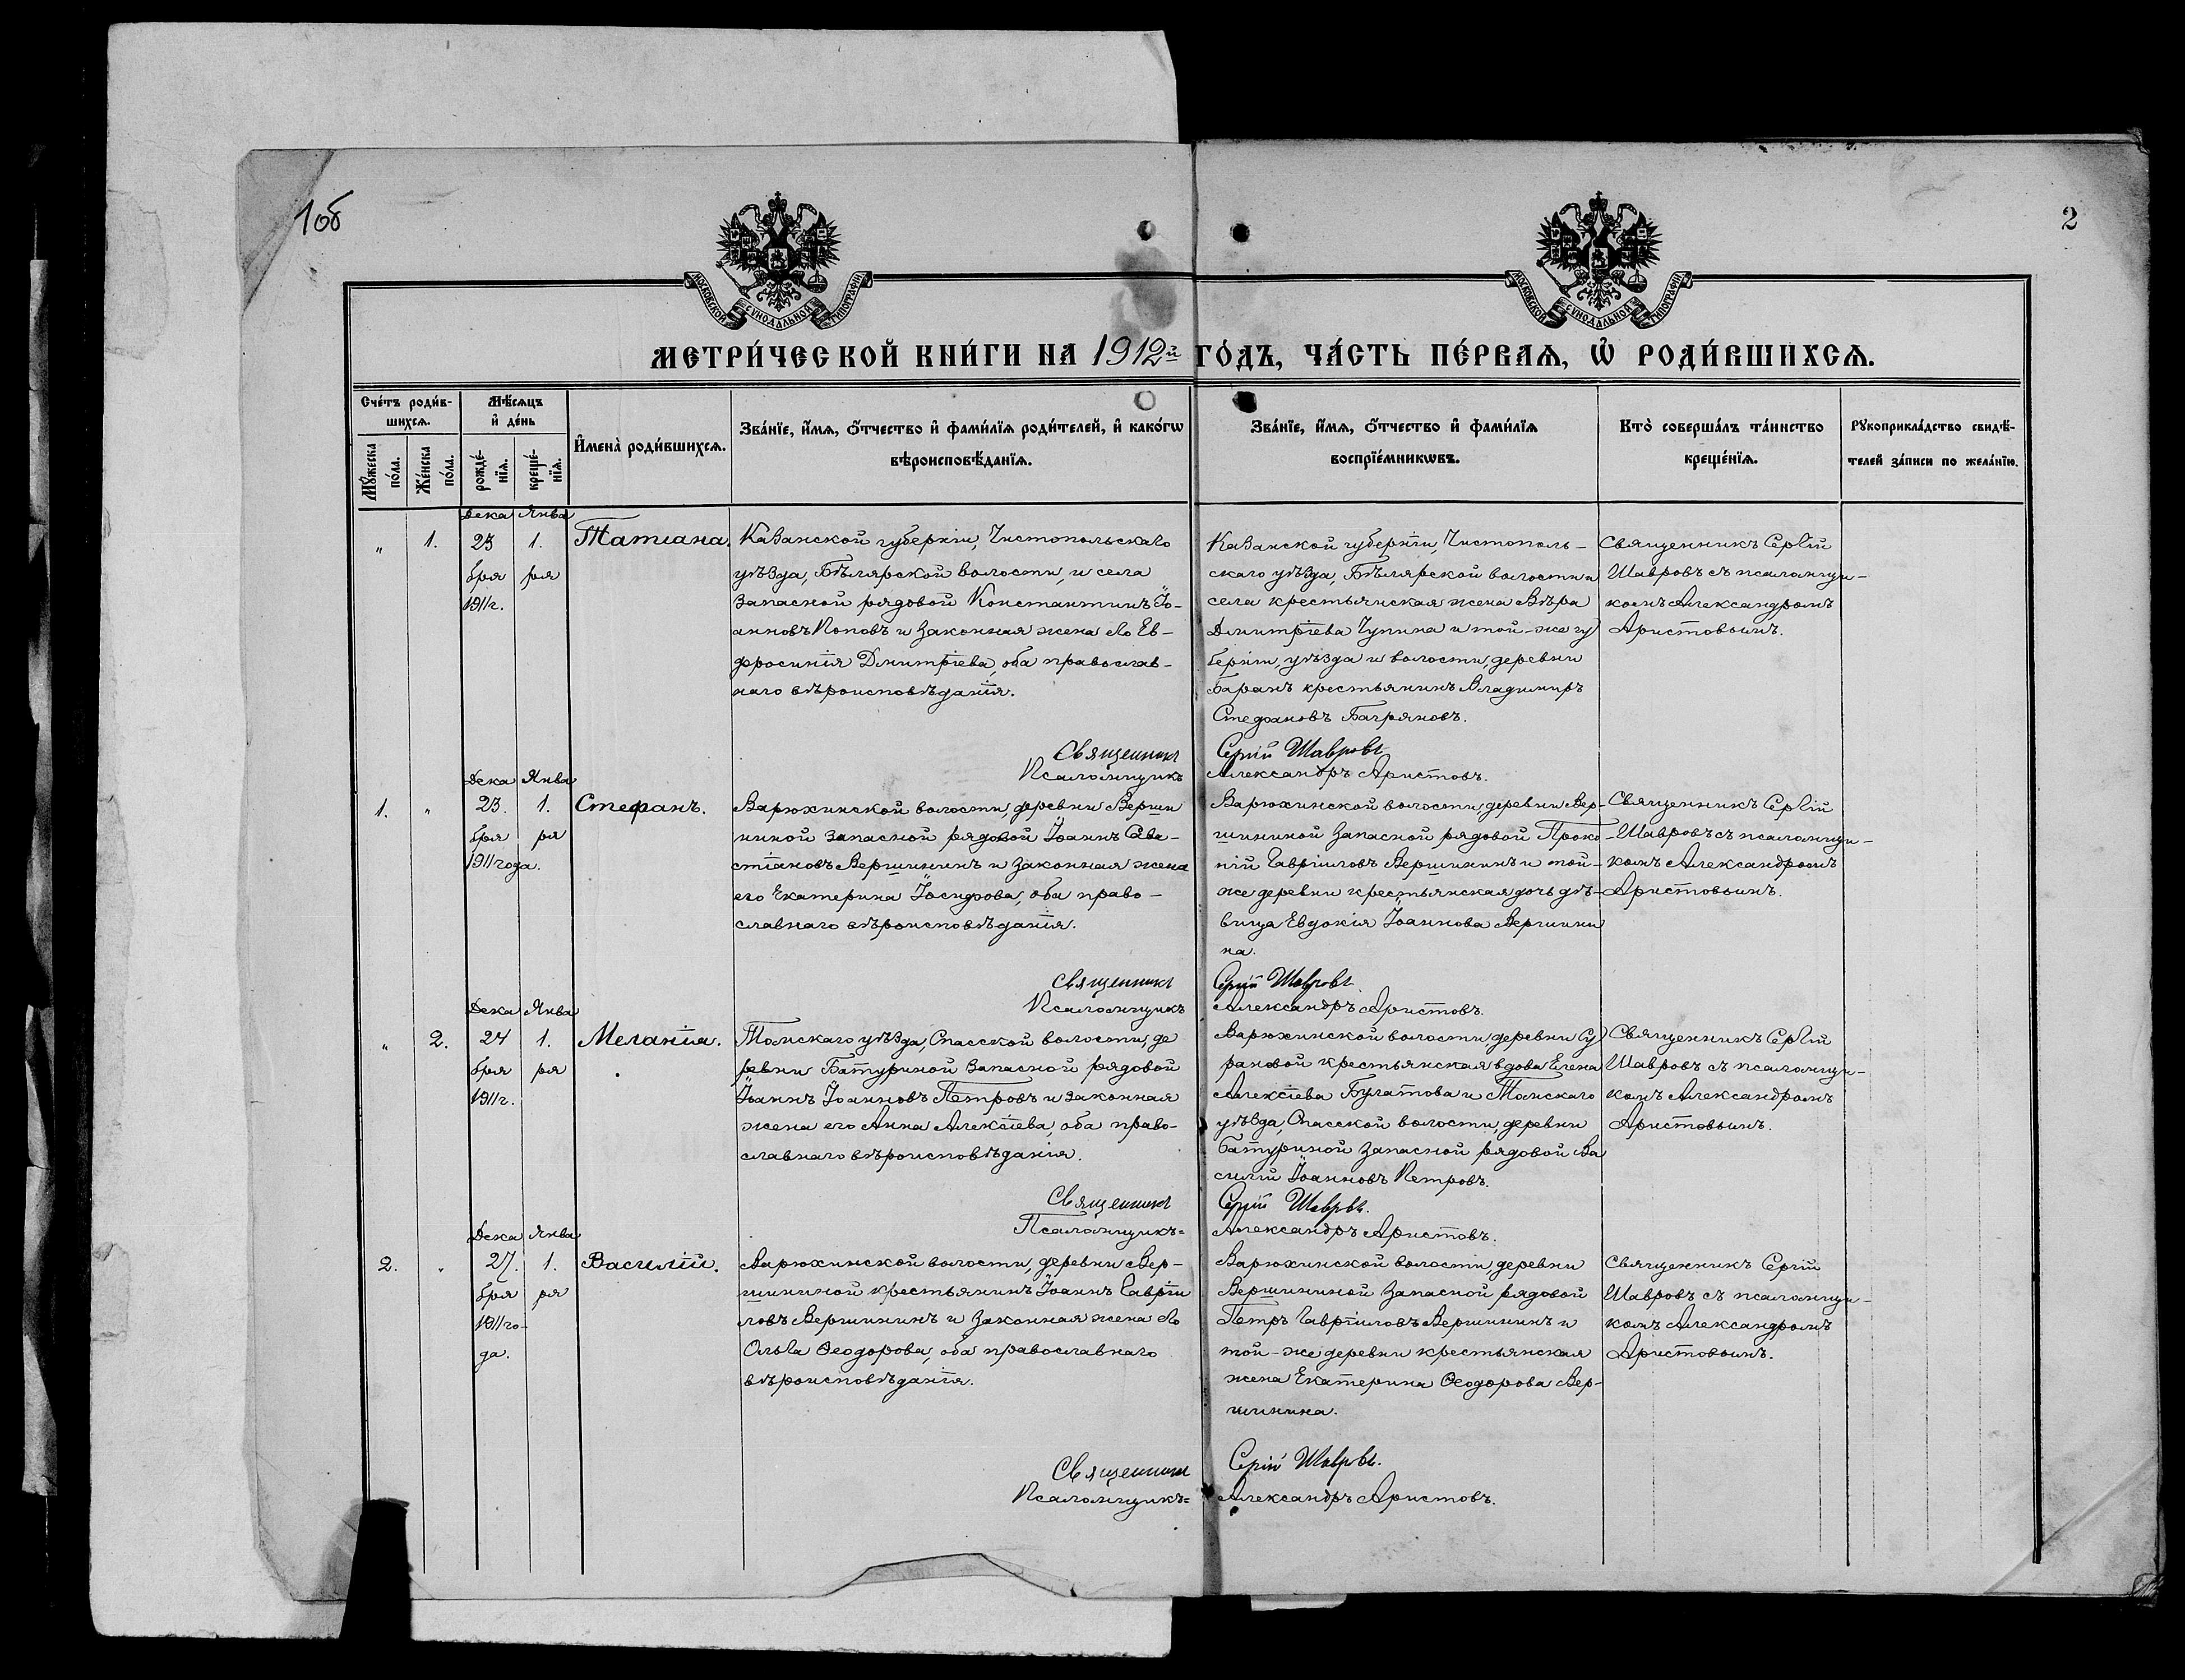 1об
2
МОСКОВСКОЙ СѴНОДАЛЬНОЙ ТИПОГРАФІИ
МОСКОВСКОЙ СѴНОДАЛЬНОЙ ТИПОГРАФІИ
МЕТРИ́ЧЕСКОЙ КНИ́ГИ НА 1912й ГО́ДЪ, ЧА́СТЬ ПЕ́РВАѦ, Ѡ҆ РОДИ́ВШИХСѦ.
Сче́тъ роди́в-
шихсѧ.
Мѣ́сѧцъ
и҆ де́нь
Мꙋ́жеска
по́ла.
Же́нска
по́ла.
рожде́-
нїѧ.
креще́-
нїѧ.
И҆мена̀ роди́вшихсѧ.
Зва́нїе, и҆́мѧ, ѻ҆́тчество и҆ фами́лїѧ роди́телей, и҆ како́гѡ
вѣроисповѣ́данїѧ.
Зва́нїе, и҆́мѧ, ѻ҆́тчество и҆ фами́лїѧ
воспрїе́мникѡвъ.
Кто̀ соверша́лъ та́инство
креще́нїѧ.
Рꙋкоприкла́дство свидѣ́-
телей за́писи по жела́нїю.
Дека Янва
„ 1. 23 1. Татіана.
бря ря
1911г.
Казанской губерніи, Чистопольскаго
уѣзда, Бѣлярской волости, и села
запасной рядовой Константинъ Іо-
анновъ Поповъ и законная жена его Ев-
фросинія Димитріева, оба православ-
наго вѣроисповѣданія.
Казанской губерніи, Чистополь-
скаго уѣзда, Бѣлярской волости и
села крестьянская жена Вѣра
Димитріева Чупина и той-же гу
берніи, уѣзда и волости, деревни
Баранъ крестьянинъ Владимиръ
Стефановъ Багряновъ.
Священникъ Сергій
Шавровъ съ псаломщи-
комъ Александромъ
Аристовымъ.
Священникъ Сергій Шавровъ
Псаломщикъ Александръ Аристовъ.
Дека Янва
1. „ 23. 1. Стефанъ.
бря ря
1911года.
Варюхинской волости, деревни Верши
ниной запасной рядовой Іоаннъ Сева-
стіановъ Вершининъ и законная жена
его Екатерина Іосифова, оба право-
славнаго вѣроисповѣданія.
Варюхинской волости, деревни Вер-
шининой запасной рядовой Проко-
пій Гавріиловъ Вершининъ и той-
же деревни крестьянская дочь дѣ-
вица Евдокія Іоаннова Вершини
на.
Священникъ Сергій
Шавровъ съ псаломщи-
комъ Александромъ
Аристовымъ.
Священникъ Сергій Шавровъ.
Псаломщикъ Александръ Аристовъ.
Дека Янва
„ 2. 24 1. Меланія.
бря ря
1911г.
Томскаго уѣзда, Спасской волости, де
ревни Батуриной запасной рядовой
Іоаннъ Іоанновъ Петровъ и законная
жена его Анна Алексіева, оба право-
славнаго вѣроисповѣданія.
Варюхинской волости, деревни Су
рановой крестьянская вдова Елена
Алексіева Булатова и Томскаго
уѣзда, Спасской волости, деревни
Батуриной запасной рядовой Ва
силій Іоанновъ Петровъ.
Священникъ Сергій
Шавровъ съ псаломщи-
комъ Александромъ
Аристовымъ.
Священникъ Сергій Шавровъ.
Псаломщикъ= Александръ Аристовъ.
Дека Янва
2. „ 27. 1. Василій.
бря ря
1911го-
да.
Варюхинской волости, деревни Вер-
шининой крестьянинъ Іоаннъ Гавріи
ловъ Вершининъ и законная жена его
Ольга Ѳеодорова, оба православнаго
вѣроисповѣданія.
Варюхинской волости деревни
Вершининой запасной рядовой
Петръ Гавріиловъ Вершининъ и
той-же деревни крестьянская
жена Екатерина Ѳеодорова Вер-
шинина.
Священникъ Сергій
Шавровъ съ псаломщи-
комъ Александромъ
Аристовымъ.
Священникъ Сергій Шавровъ.
Псаломщикъ= Александръ Аристовъ.